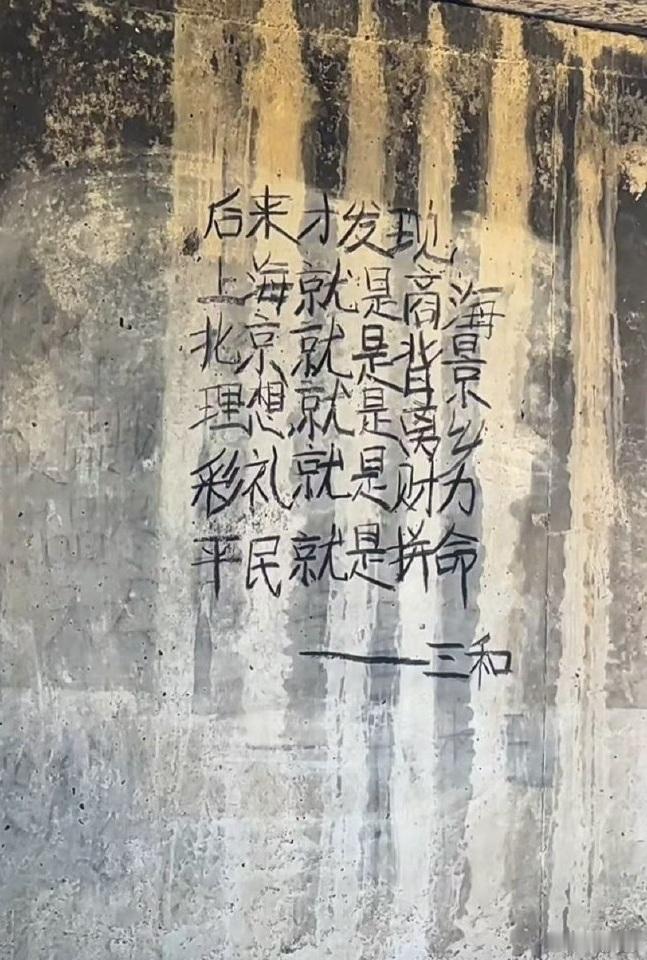 后来才发现
上海就是商海
北京就是背景
理想就是离乡
彩礼就是财力
平民就是拼命
——三和